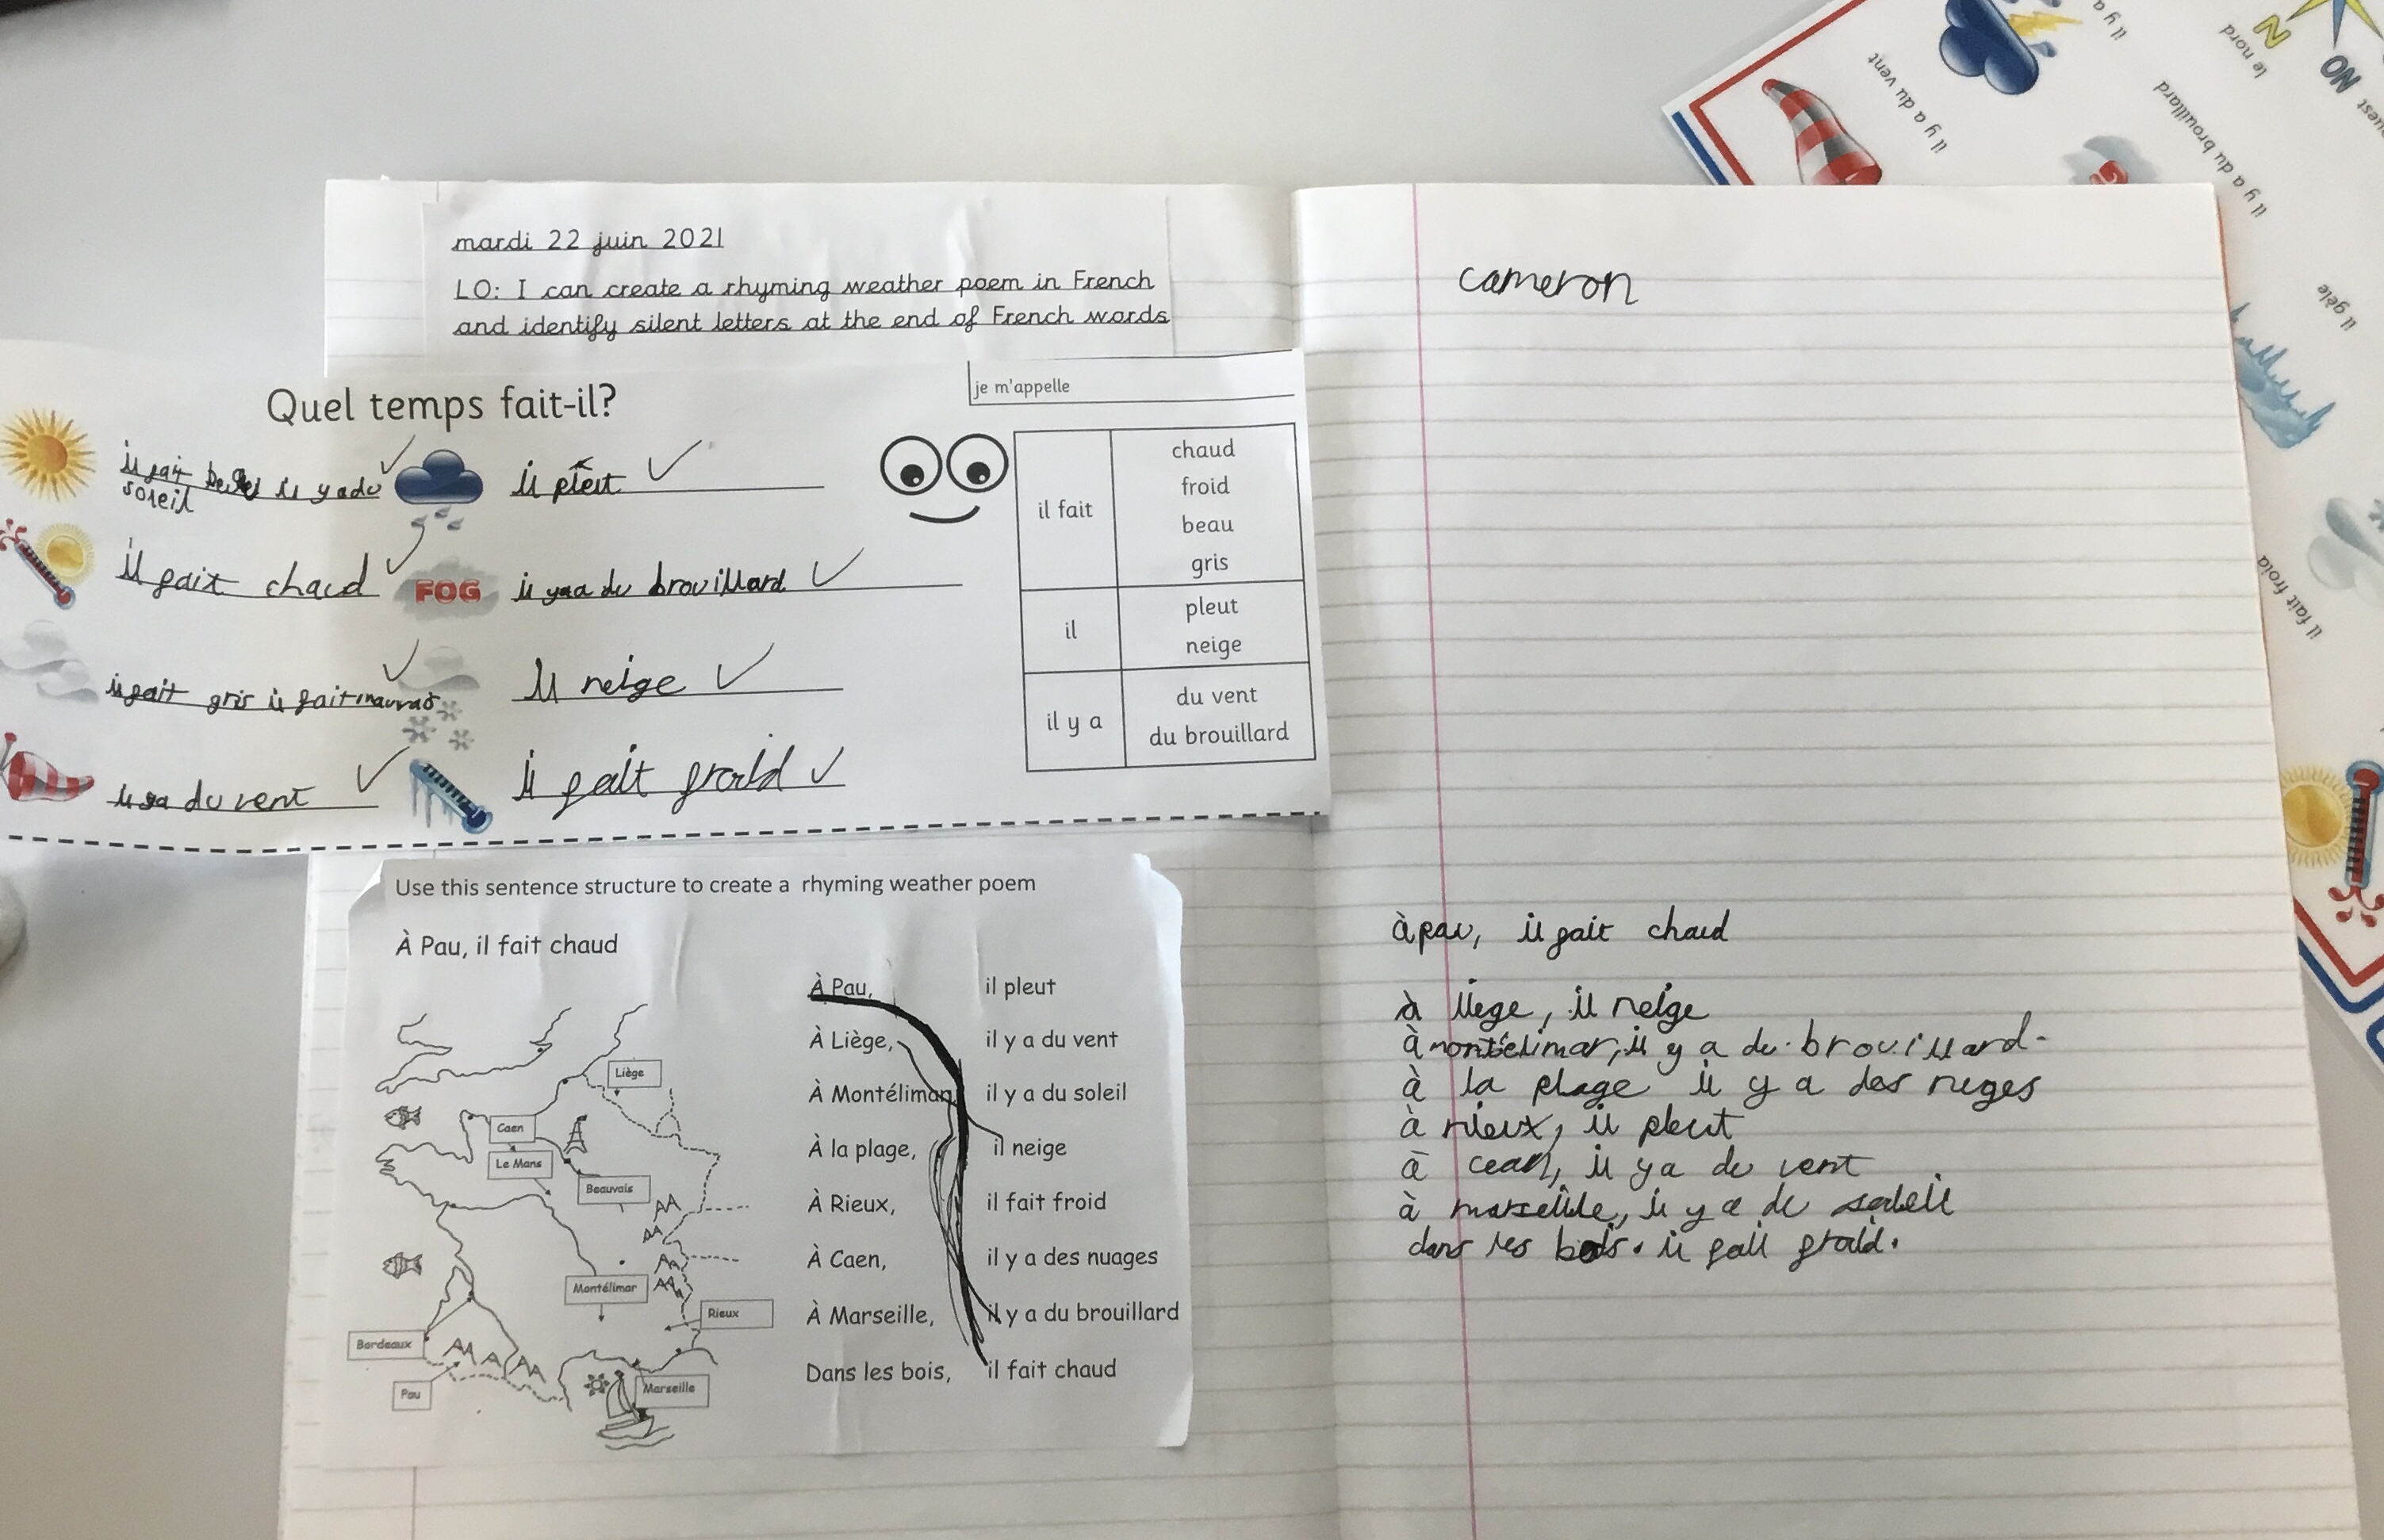 mardi 22 juin 2021
LO: I can create a rhyming weather poem in French
and identify silent letters at the end of French words
Quel temps fait-il?
je m'appelle
il fait il y a du
soleil
il pleut
il fait chaud
FOG
il ya du brouillard
il fait gris il fait mauvas
il neige
il ya du vent
il fait froid
il fait
chaud
froid
beau
gris
il
pleut
neige
il y a
du vent
du brouillard
Use this sentence structure to create a rhyming weather poem
À Pau, il fait chaud
À Pau, il pleut
À Liège, il y a du vent
À Montélimar, il y a du soleil
À la plage, il neige
À Rieux, il fait froid
À Caen, il y a des nuages
À Marseille, il y a du brouillard
Dans les bois, il fait chaud
Liège
Caen
Le Mans
Beauvais
Montélimar
Rieux
Bordeaux
Pau
Marseille
cameron
à pau, il fait chaud
à liege, il neige
à montélimar, il y a du brouillard
à la plage il y a des nuges
à rieux, il pleut
à cean, il y a du vent
à marseille, il y a du soleil
dans les bois. il fait froid.
il y a du vent
il y a
le nord
N
NO
ouest
il y a du brouillard
il gèle
il fait froid